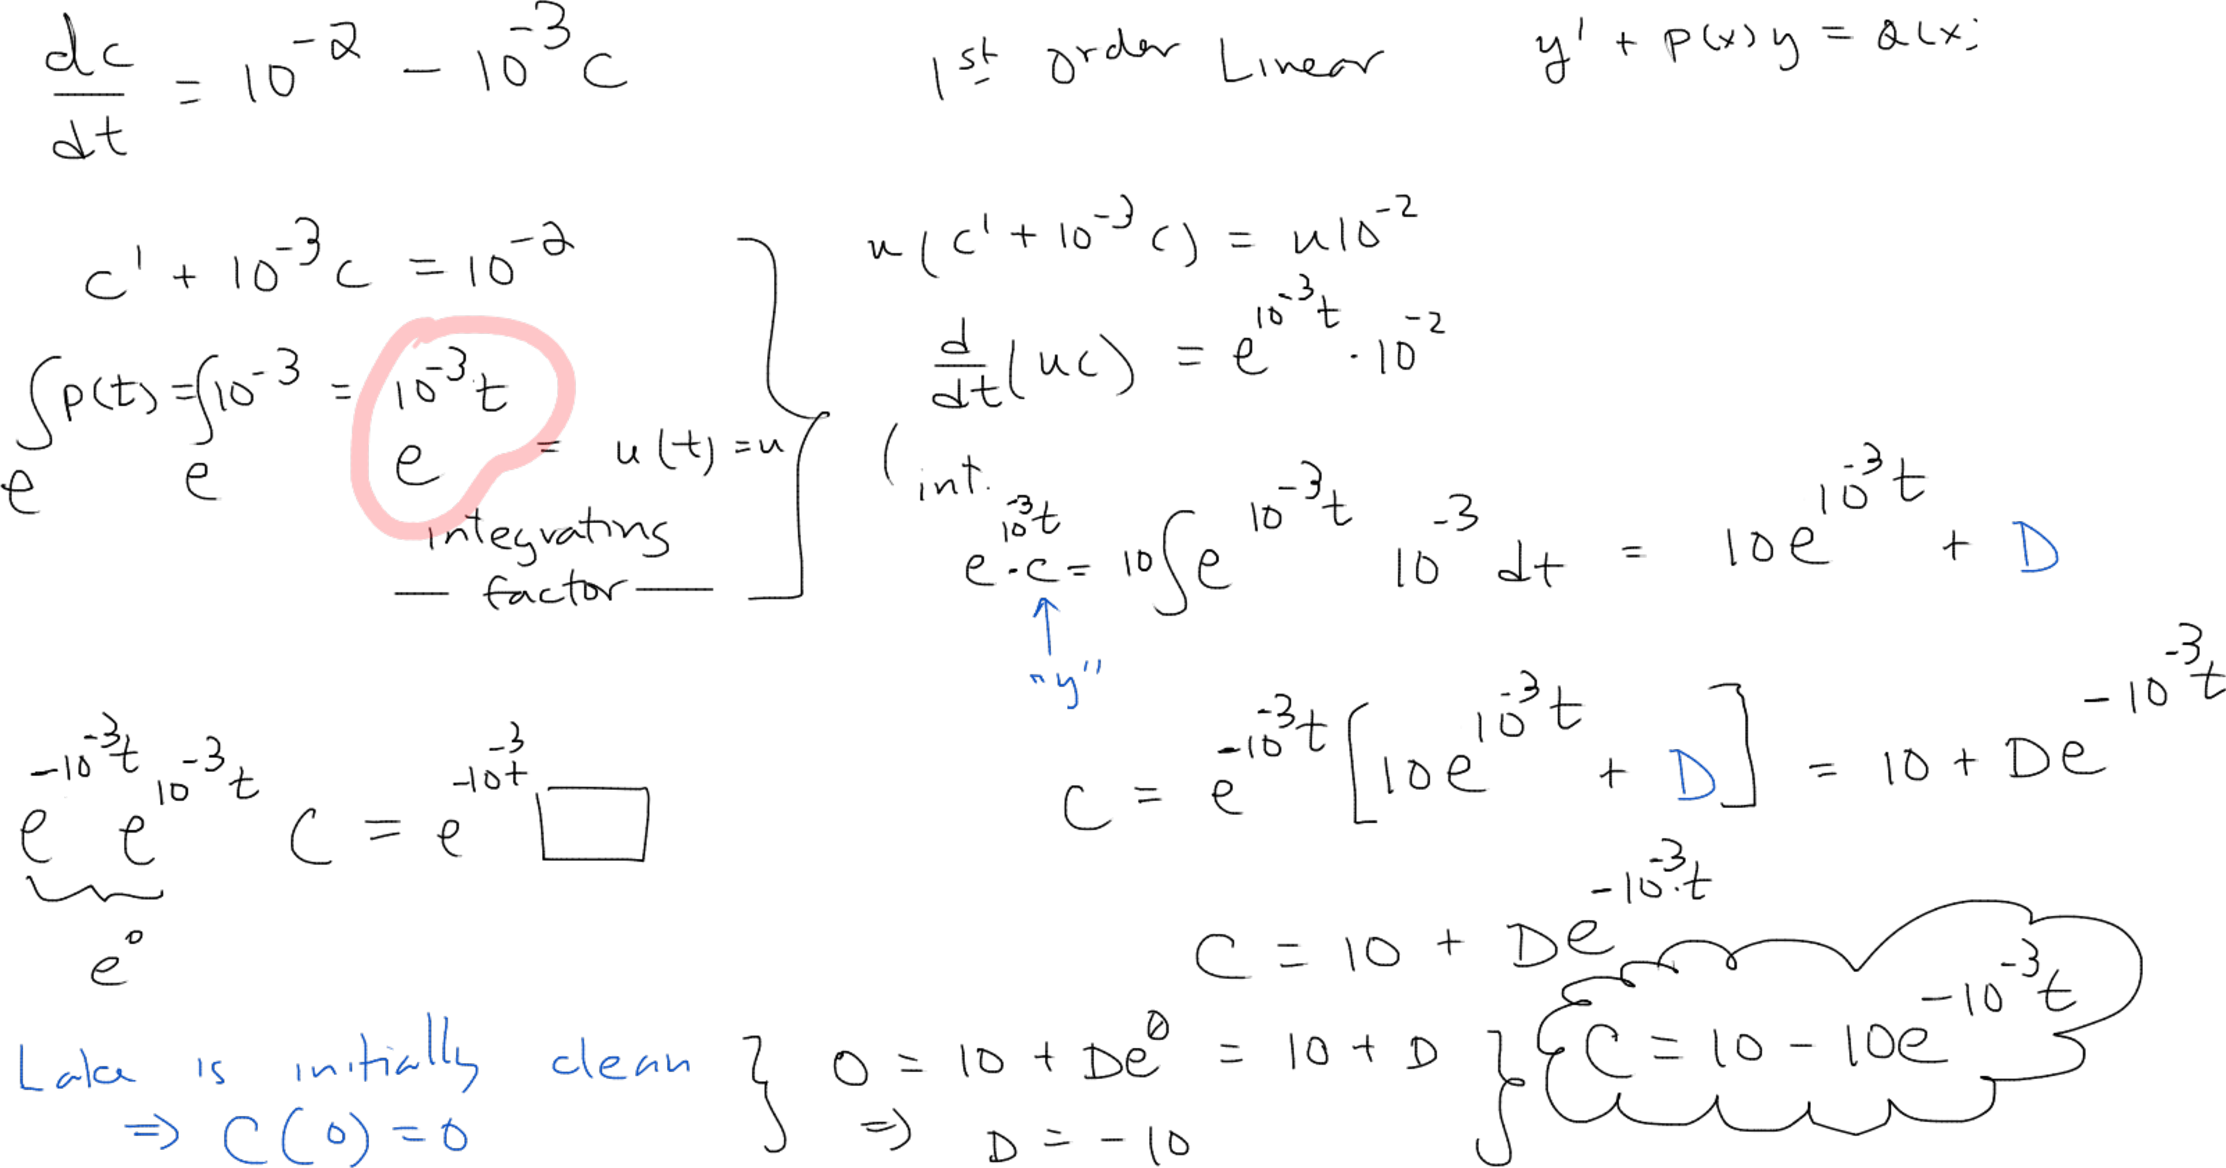 dc/dt = 10^-2 - 10^-3 c
1st order Linear
y' + p(x) y = Q(x)
c' + 10^-3 c = 10^-2
e^∫p(t) = e^∫10^-3 = e^(10^-3 t) = u(t) = u
integrating
— factor —
u(c' + 10^-3 c) = u10^-2
d/dt(uc) = e^(10^-3 t) · 10^-2
( int.
e^(10^-3 t) · c = 10∫e^(10^-3 t) 10^-3 dt = 10e^(10^-3 t) + D
↑
"y"
e^(-10^-3 t) e^(10^-3 t) C = e^(-10^-3 t) □
e^0
C = e^(-10^-3 t) [10e^(10^-3 t) + D] = 10 + De^(-10^-3 t)
C = 10 + De^(-10^-3 t)
Lake is initially clean
⇒ C(0) = 0
0 = 10 + De^0 = 10 + D
⇒ D = -10
C = 10 - 10e^(-10^-3 t)